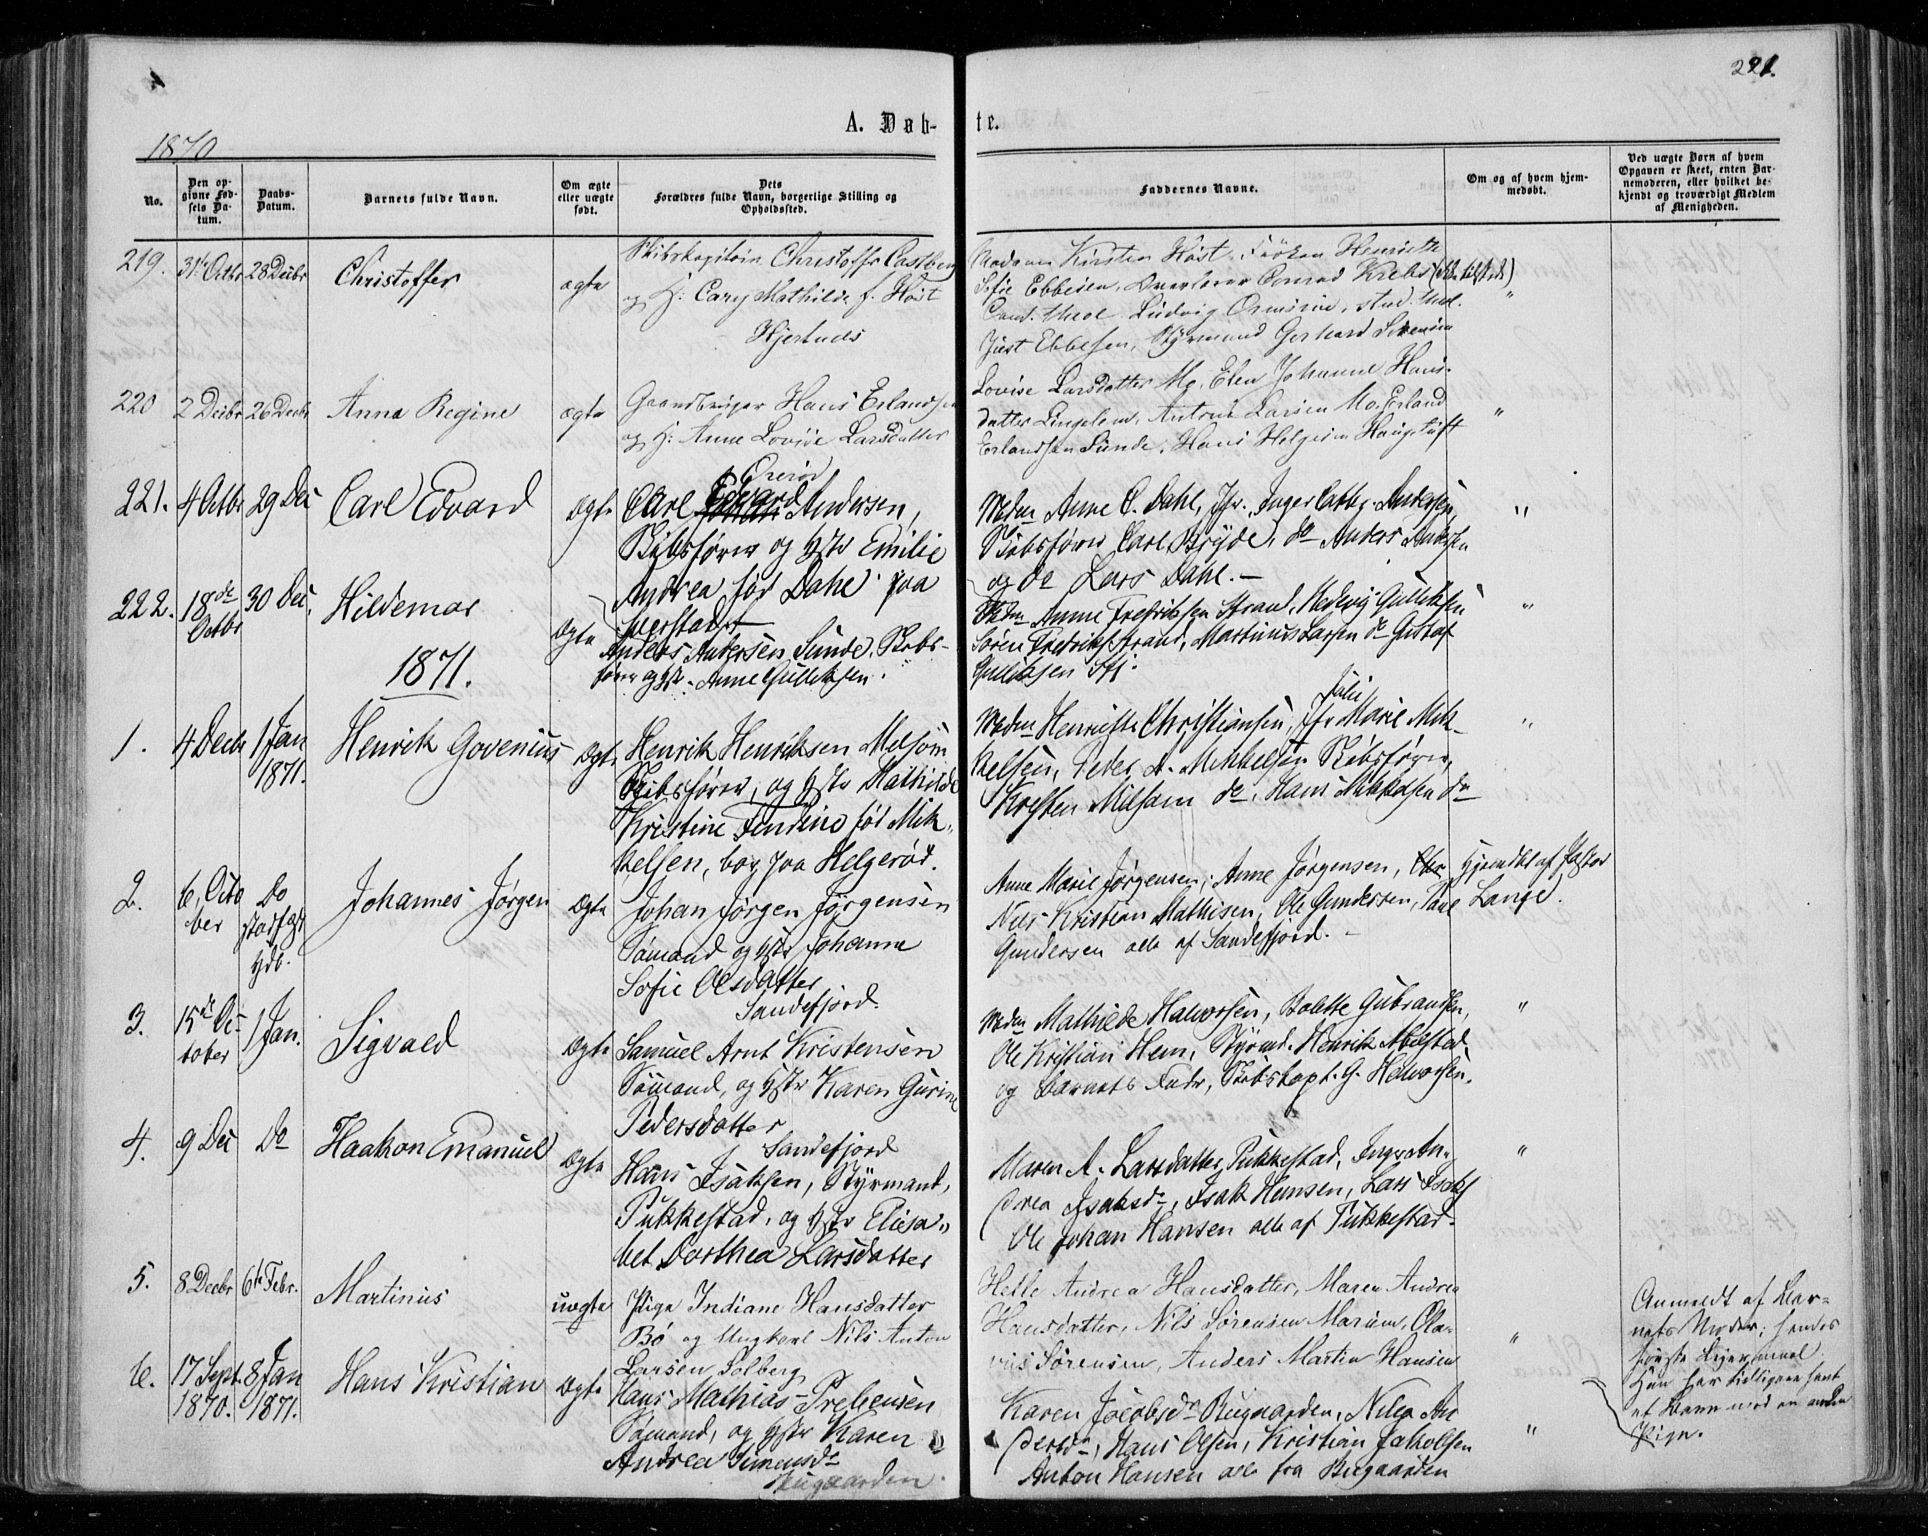 221.
A. Døb-
te.
1870
No.
Den op-
givne Fød-
sels Da-
tum.
Daabs-
Datum.
Barnets fulde Navn.
Om ægte
eller uægte
født.
Dets
Forældres fulde Navn, borgerlige Stilling og
Opholdssted.
Faddernes Navne.
Om og af hvem hjem-
medøbt.
Ved uægte Børn af hvem
Opgaven er skeet, enten Bar-
nemoderen, eller hvilket be-
kjendt og troværdigt Medlem
af Menigheden.
219. 31te Octbr 28 Decbr Christoffer ægte
Skibskapitain Christoffer Castberg
og H: Cary Mathilde f. Høst
Hjertnæs
Madame Kirsten Høst, Frøken Henriette
Sofie Ebbesen, Overlærer Conrad Krebs
Cand. theol. Ludvig stud. med.
Just Ebbesen, Styrmand Gerhard Sørensen "
220 2 Decbr 26 Decbr Anna Regine ægte
Gaardbruger Hans Erlandsen
og H: Anne Lovise Larsdatter
Lovise Larsdatter Mo, Elen Johanne Hans-
datter Lingelem, Anton Larsen Mo, Erland
Erlandsen Sunde, Hans Helgesen Haugtuft "
221. 4 Octbr 29 Dec Carl Edvard Ægte
Carl Edvard Andersen,
Skibsfører og Hstr Emilie
Andrea fød Dahl paa
Mdm Anne C. Dahl, Jfr. Inger Cathr. Andersen,
Skibsfører Carl Bryde, do Anders Andersen
og do Lars Dahl.— "
222. 18de Octbr 30 Dec. Hildemar Ægte
Anders Andersen Sunde, Skibs-
fører og H. Anne Gulliksen.
Mdm Anne Fredriksen Strand, Hedevig Gulliksen
Søren Fredriks. Strand, Martinus Larsen do Gustaf
Gulliksen "
1871.
1. 4 Decbr 1 Jan 1871. Henrik Govenius Ægte
Henrik Henriksen Melsom
Skibsfører, og Hstr Mathilde
Kristine Fendine fød Mik-
kelsen, boe paa Helgerød.
Mdm Henriette Christiansen, Jfr Julie Marie Mik-
kelsen, Peder A. Mikkelsen Skibsfører,
Kristen Milsom do, Hans Mikkelsen do "
2. 6. Octo
ber Do
stadfæst
Hdb. Johannes Jørgen Ægte
Johan Jørgen Jørgensen
Sømand og Hstr Johanne
Sofie Olsdatter
Sandefjord.
Anne Marie Jørgensen, Anne Jørgensen,
Nils Kristian Mathisen, Ole Gundersen, Paul
Gundersen alle af Sandefjord.—
Hjemdbt af Pastor
Lange.
3. 15de Oc-
tober 1 Jan. Sigvald Ægte
Samuel Arnt Kristensen
Sømand, og Hstr Karen Gurine
Pedersdatter
Sandefjord
Mdm Mathilde Halvorsen, Bolette Gubrandsen,
Ole Kristian Hem, Styrmd. Henrik Melstad
og Barnets Fadr, Skibskapt. G. Halvorsen. "
4. 9 Dec Do Haakon Emanuel Ægte
Hans Isaksen, Styrmand,
Pukkestad, og Hstr Elisa-
bet Dorthea Larsdatter
Maren A. Larsdatter Pukkestad, Inger An-
drea Isaksdr, Isak Hansen, Lars Isaks
Ole Johan Hansen alle af Pukkestad. "
5. 8 Decbr 6te Febr. Martinus uægte
Pige Indiane Hansdatter
Bø og Ungkarl Nils Anton
Larsen Solberg
Helle Andrea Hansdatter, Maren Andrea
Hansdatter, Nils Sørensen Marum, Ola-
vus Sørensen, Anders Martin Hansen "
Anmeldt af Bar-
nets Moder; hendes
første Leiermaal.
Han har tidligere havt
et Barn med en anden
Pige.
6. 17 Sept.
1870. 8 Jan
1871. Hans Kristian Ægte
Hans Mathias Prebensen
Sømand, og Hstr Karen
Andrea Simensdr
Bugaarden.
Karen Jacobsdr Bugaarden, Nilea An-
dersdr, Hans Olsen, Kristian Jakobsen
Anton Hansen alle fra Bugaarden "